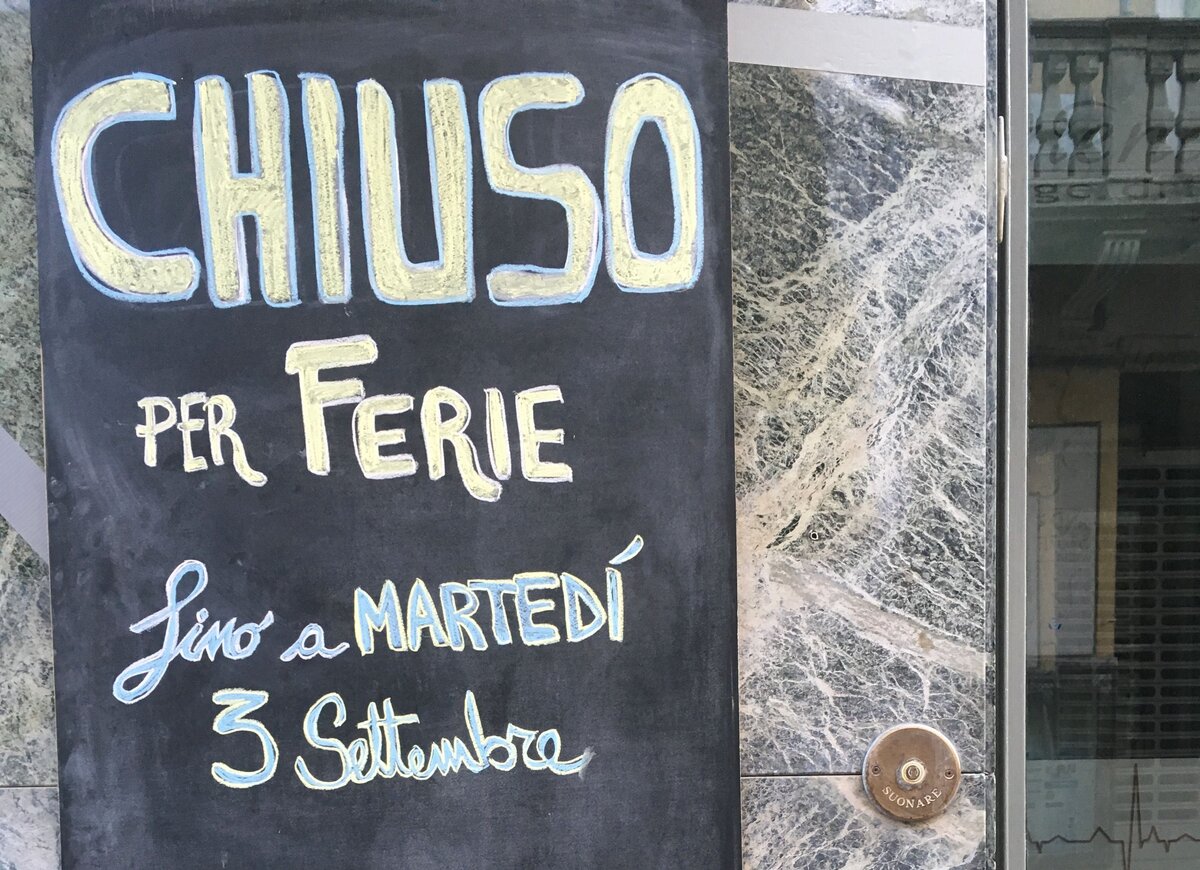 CHIUSO
PER FERIE
fino a MARTEDÍ
3 Settembre
SUONARE